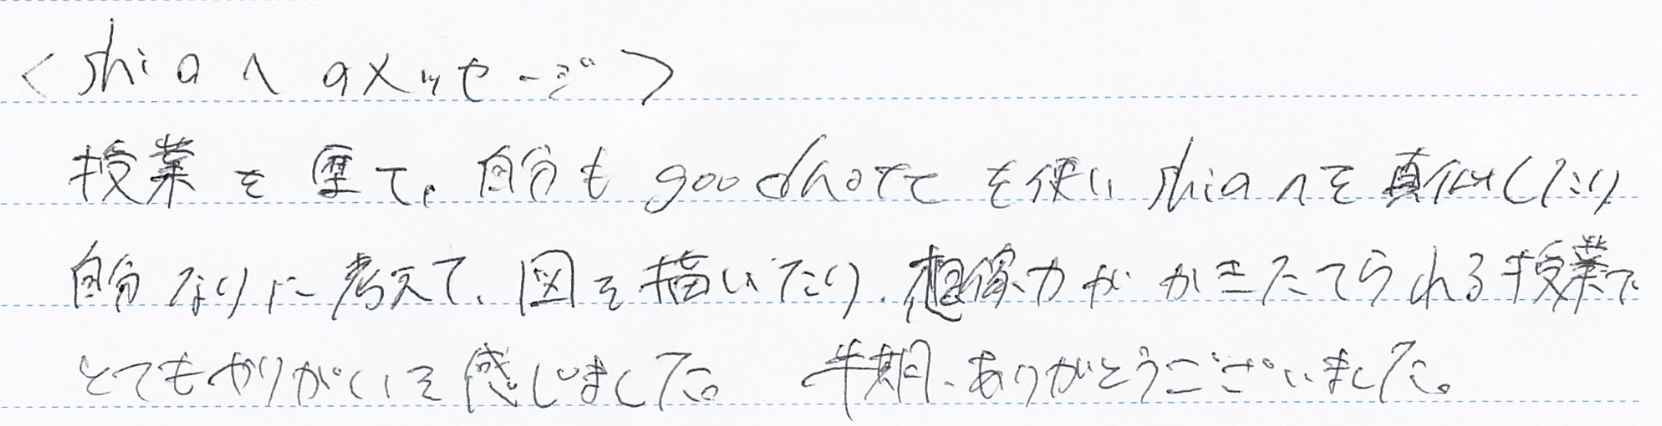 <shiaへのメッセージ>
授業を 、自分もgoodnoteを使いshiaへを真似したり
自分なりに考えて、図を描いたり、想像力がかきたてられる授業で
とてもやりがいを感じました。半期、ありがとうございました。